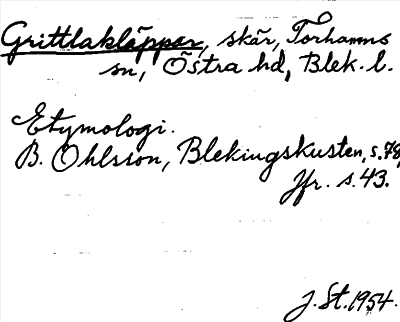 Grittlakläppen, skär, Torhamns
sn, Östra hd, Blek. l.
Etymologi.
B. Ohlsson, Blekingskusten, s. 78,
Jfr. s. 43.
J. St. 1954.